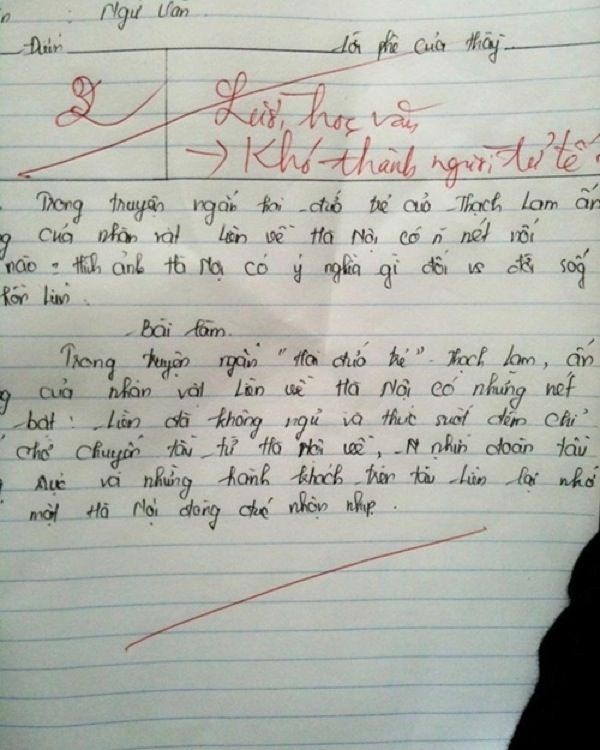 : Ngữ Văn
Điểm
Lời phê của thầy
2
Lười học văn
→ Khó thành người tử tế.
Trong truyện ngắn hai đứa trẻ của Thạch Lam ấn
g của nhân vật Liên về Hà Nội có n nét nổi
nào = hình ảnh Hà Nội có ý nghĩa gì đối vs đời sốg
hồn Liên.
Bài làm.
Trong truyện ngắn "Hai đứa trẻ" Thạch Lam, ấn
g của nhân vật Liên về Hà Nội có những nét
bật: Liên đã không ngủ và thức suốt đêm chỉ
chờ chuyến tàu từ Hà Nội về, N nhìn đoàn tàu
rực và những hành khách trên tàu Liên lại nhớ
một Hà Nội đông đúc nhộn nhịp.